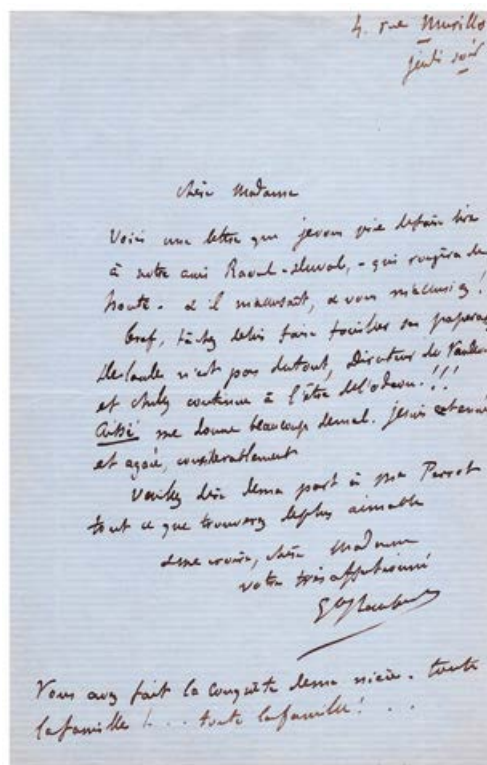 4. rue Murillo
jeudi soir
chère Madame
Voici une lettre que je vous prie de faire lire
à notre ami Raoul-Duval, - qui rougira de
honte. - & il m'accusait, & vous m'accusiez!
Bref, tâchez de lui faire fouiller ses paperasses
n'est pas du tout, Directeur du
et Chilly continue à l'être de l'odéon!!!
Aïssé me donne beaucoup de mal. je suis
et agacé, considérablement
Veuillez dire de ma part à me Perrot
tout ce que trouverez de plus aimable
& me croire, chère Madame
votre très affectionné
Gve Flaubert
Vous avez fait la conquête de ma nièce. toute
la famille!... toute la famille!...